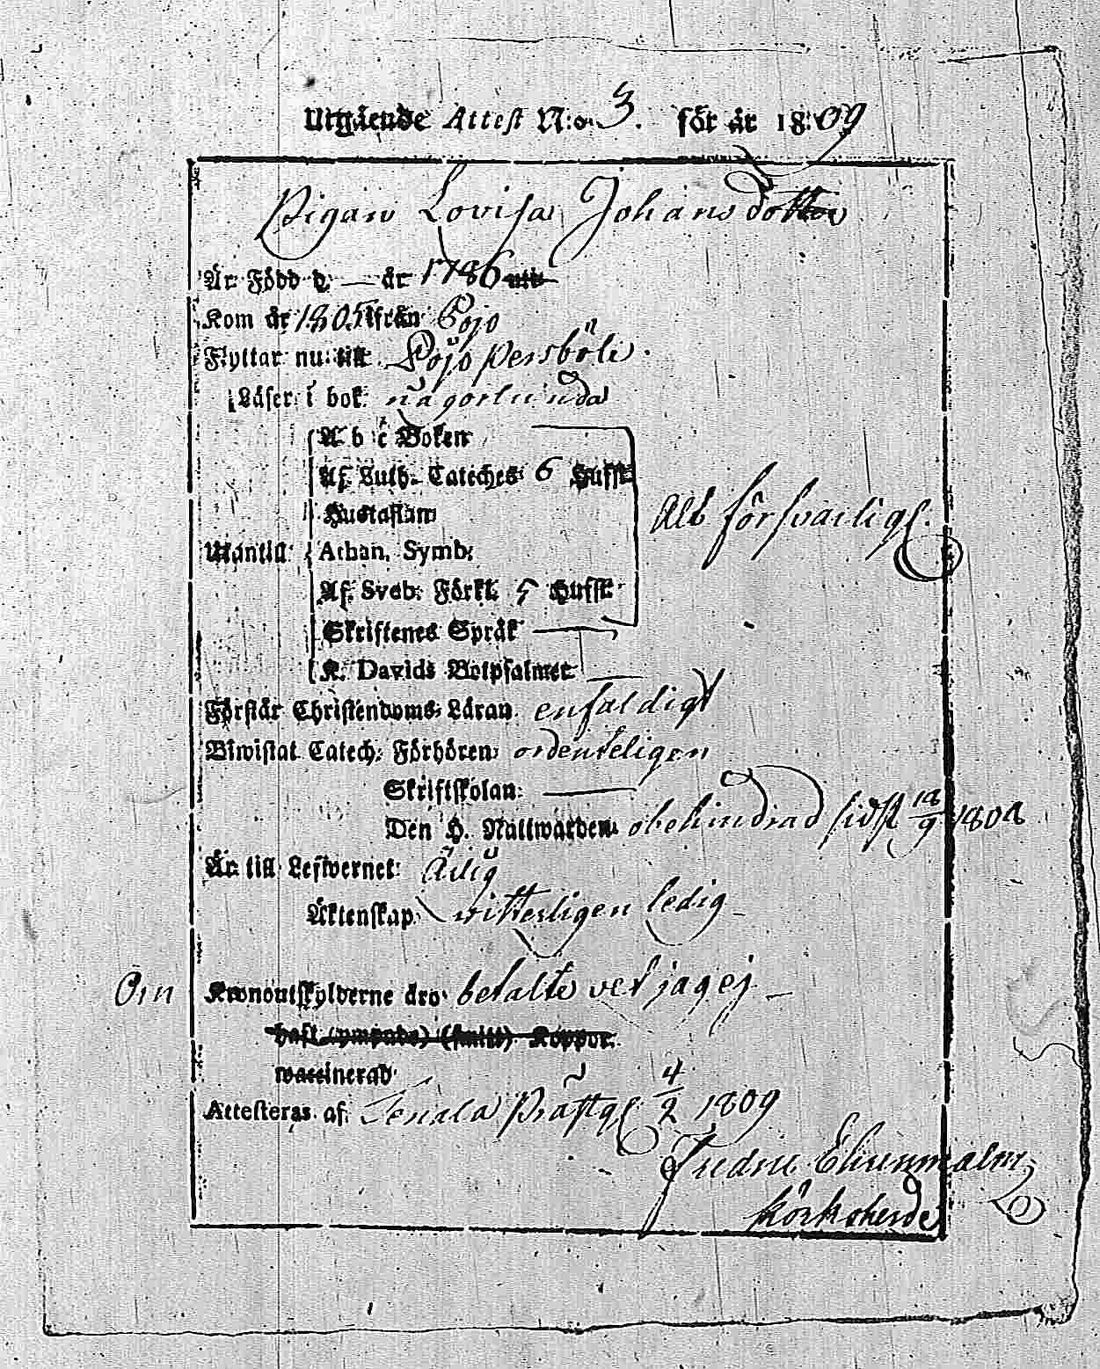 Utgående Attest N:o 3. för år 1809
Pigan Lovisa Johansdotter
Är Född d. — år 1786
Kom år 1805 ifrån Pojo
Flyttar nu till Pojo Persböle.
Läser i bok någorlunda
A b c Boken
Af Luth. Cateches 6 Hufst.
Hustaflan
Utantill Athan. Symb: Alt försvarligt.
Af Sveb. Förkl. 5 Hufst.
Skriftenes Språk
K. Davids Botpsalmer
Förstår Christendoms-Läran enfaldigt
Biwistat Catech: Förhören: ordenteligen
Skriftskolan: —
Den H. Nattwarden obehindrad sidst 18/9 1808
Är till Lefwernet: Ärlig
Äktenskap witterligen ledig
Om Kronoutskylderne äro betalte vet jag ej
Koppor.
waccinerad
Attesteras af Tenala Prästg. 4/2 1809
Fredric Ehrenmalm
Kÿrkoherde